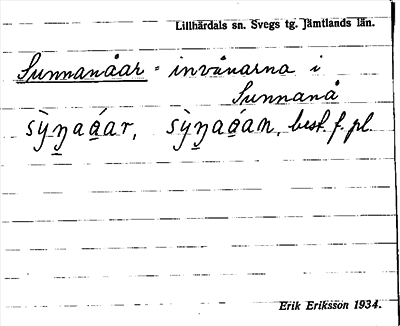 Lillhärdals sn. Svegs tg. Jämtlands län.
Sunnanåar = invånarna i
Sunnanå
sỳŋaáar, sỳŋaáan, best. f. pl.
Erik Eriksson 1934.